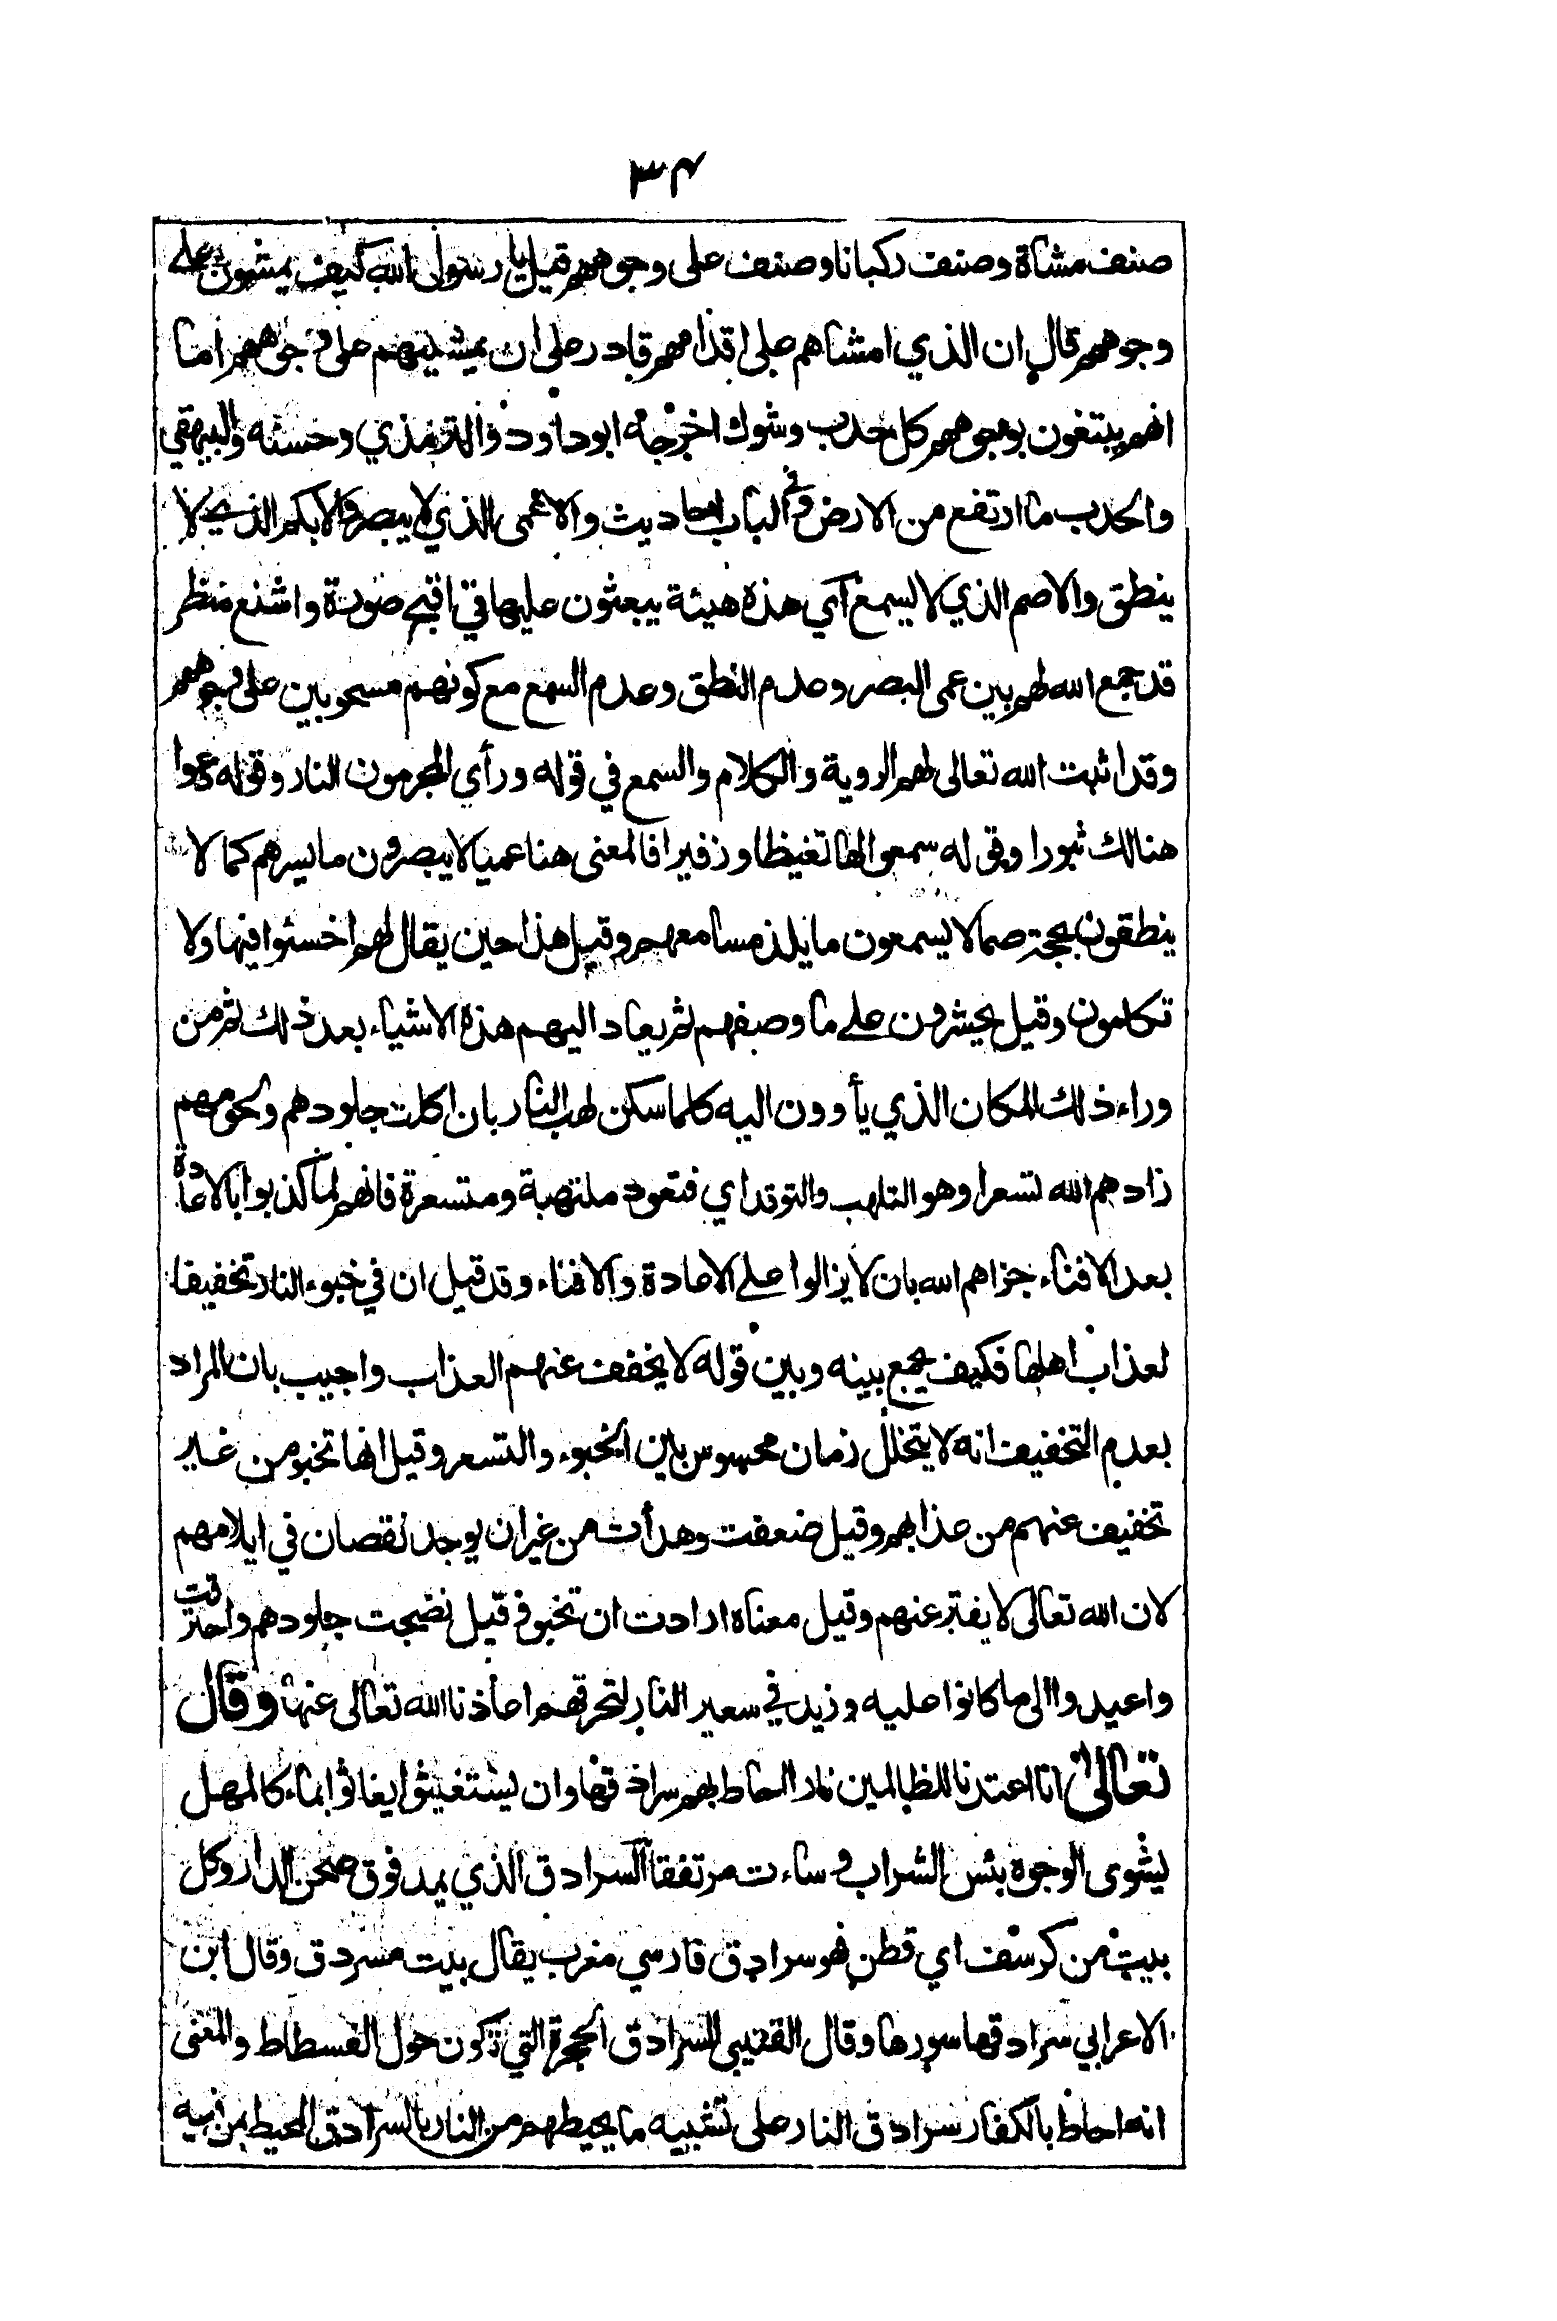 ٣٤
صنف مشاة وصنف ركبانا وصنف على وجوههم قيل يا رسول الله كيف يمشون على
وجوههم قال ان الذي امشاهم على اقدامهم قادر على ان يمشيهم على وجوههم اما
انهم يتقون بوجوههم كل حدب وشوك اخرجه ابو داود والترمذي وحسنه والبيهقي
والحدب ما ارتفع من الارض وفي الباب احاديث والاعمى الذي لا يبصر والابكم الذي لا
ينطق والاصم الذي لا يسمع اي هذه هيئة يبعثون عليها في اقبح صورة واشنع منظر
قد جمع الله لهم بين عمى البصر وعدم النطق وعدم السمع مع كونهم مسحوبين على وجوههم
وقد اثبت الله تعالى لهم الروية والكلام والسمع في قوله ورأي المجرمون النار وقوله دعوا
هنالك ثبورا وقوله سمعوا لها تغيظا وزفيرا فالمعنى هنا عميا لا يبصرون ما يسرهم كما لا
ينطقون بحجة صما لا يسمعون ما يلذ مسامعهم وقيل هذا حين يقال لهم اخسئوا فيها ولا
تكلمون وقيل يحشرون على ما وصفهم ثم يعاد اليهم هذه الاشياء بعد ذلك ثم من
وراء ذلك المكان الذي يأوون اليه كلما سكن لهب النار بان اكلت جلودهم ولحومهم
زادهم الله تسعرا وهو التلهب والتوقد اي فتعود ملتهبة ومتسعرة فانهم لما كذبوا بالاعادة
بعد الافناء جزاهم الله بان لا يزالوا على الاعادة والافناء وقد قيل ان في خبوء النار تخفيفا
لعذاب اهلها فكيف يجمع بينه وبين قوله لا يخفف عنهم العذاب واجيب بان المراد
بعدم التخفيف انه لا يتخلل زمان محسوس بين الخبوء والتسعر وقيل انها تخبو من غير
تخفيف عنهم من عذابهم وقيل ضعفت وهدأت من غير ان يوجد نقصان في ايلامهم
لان الله تعالى لا يفتر عنهم وقيل معناه ارادت ان تخبو وقيل نضجت جلودهم واحترقت
واعيدوا الى ما كانوا عليه وزيد في سعير النار لتحرقهم اعاذنا الله تعالى عنها وقال
تعالى انا اعتدنا للظالمين نارا احاط بهم سرادقها وان يستغيثوا يغاثوا بماء كالمهل
يشوى الوجوه بئس الشراب وساءت مرتفقا السرادق الذي يمد فوق صحن الدار وكل
بيت من كرسف اي قطن فهو سرادق فارسي معرب يقال بيت مسردق وقال ابن
الاعرابي سرادقها سورها وقال القتيبي السرادق الحجرة التي تكون حول الفسطاط والمعنى
انه احاط بالكفار سرادق النار على تشبيه ما يحيط بهم من النار بالسرادق المحيط بمن فيه